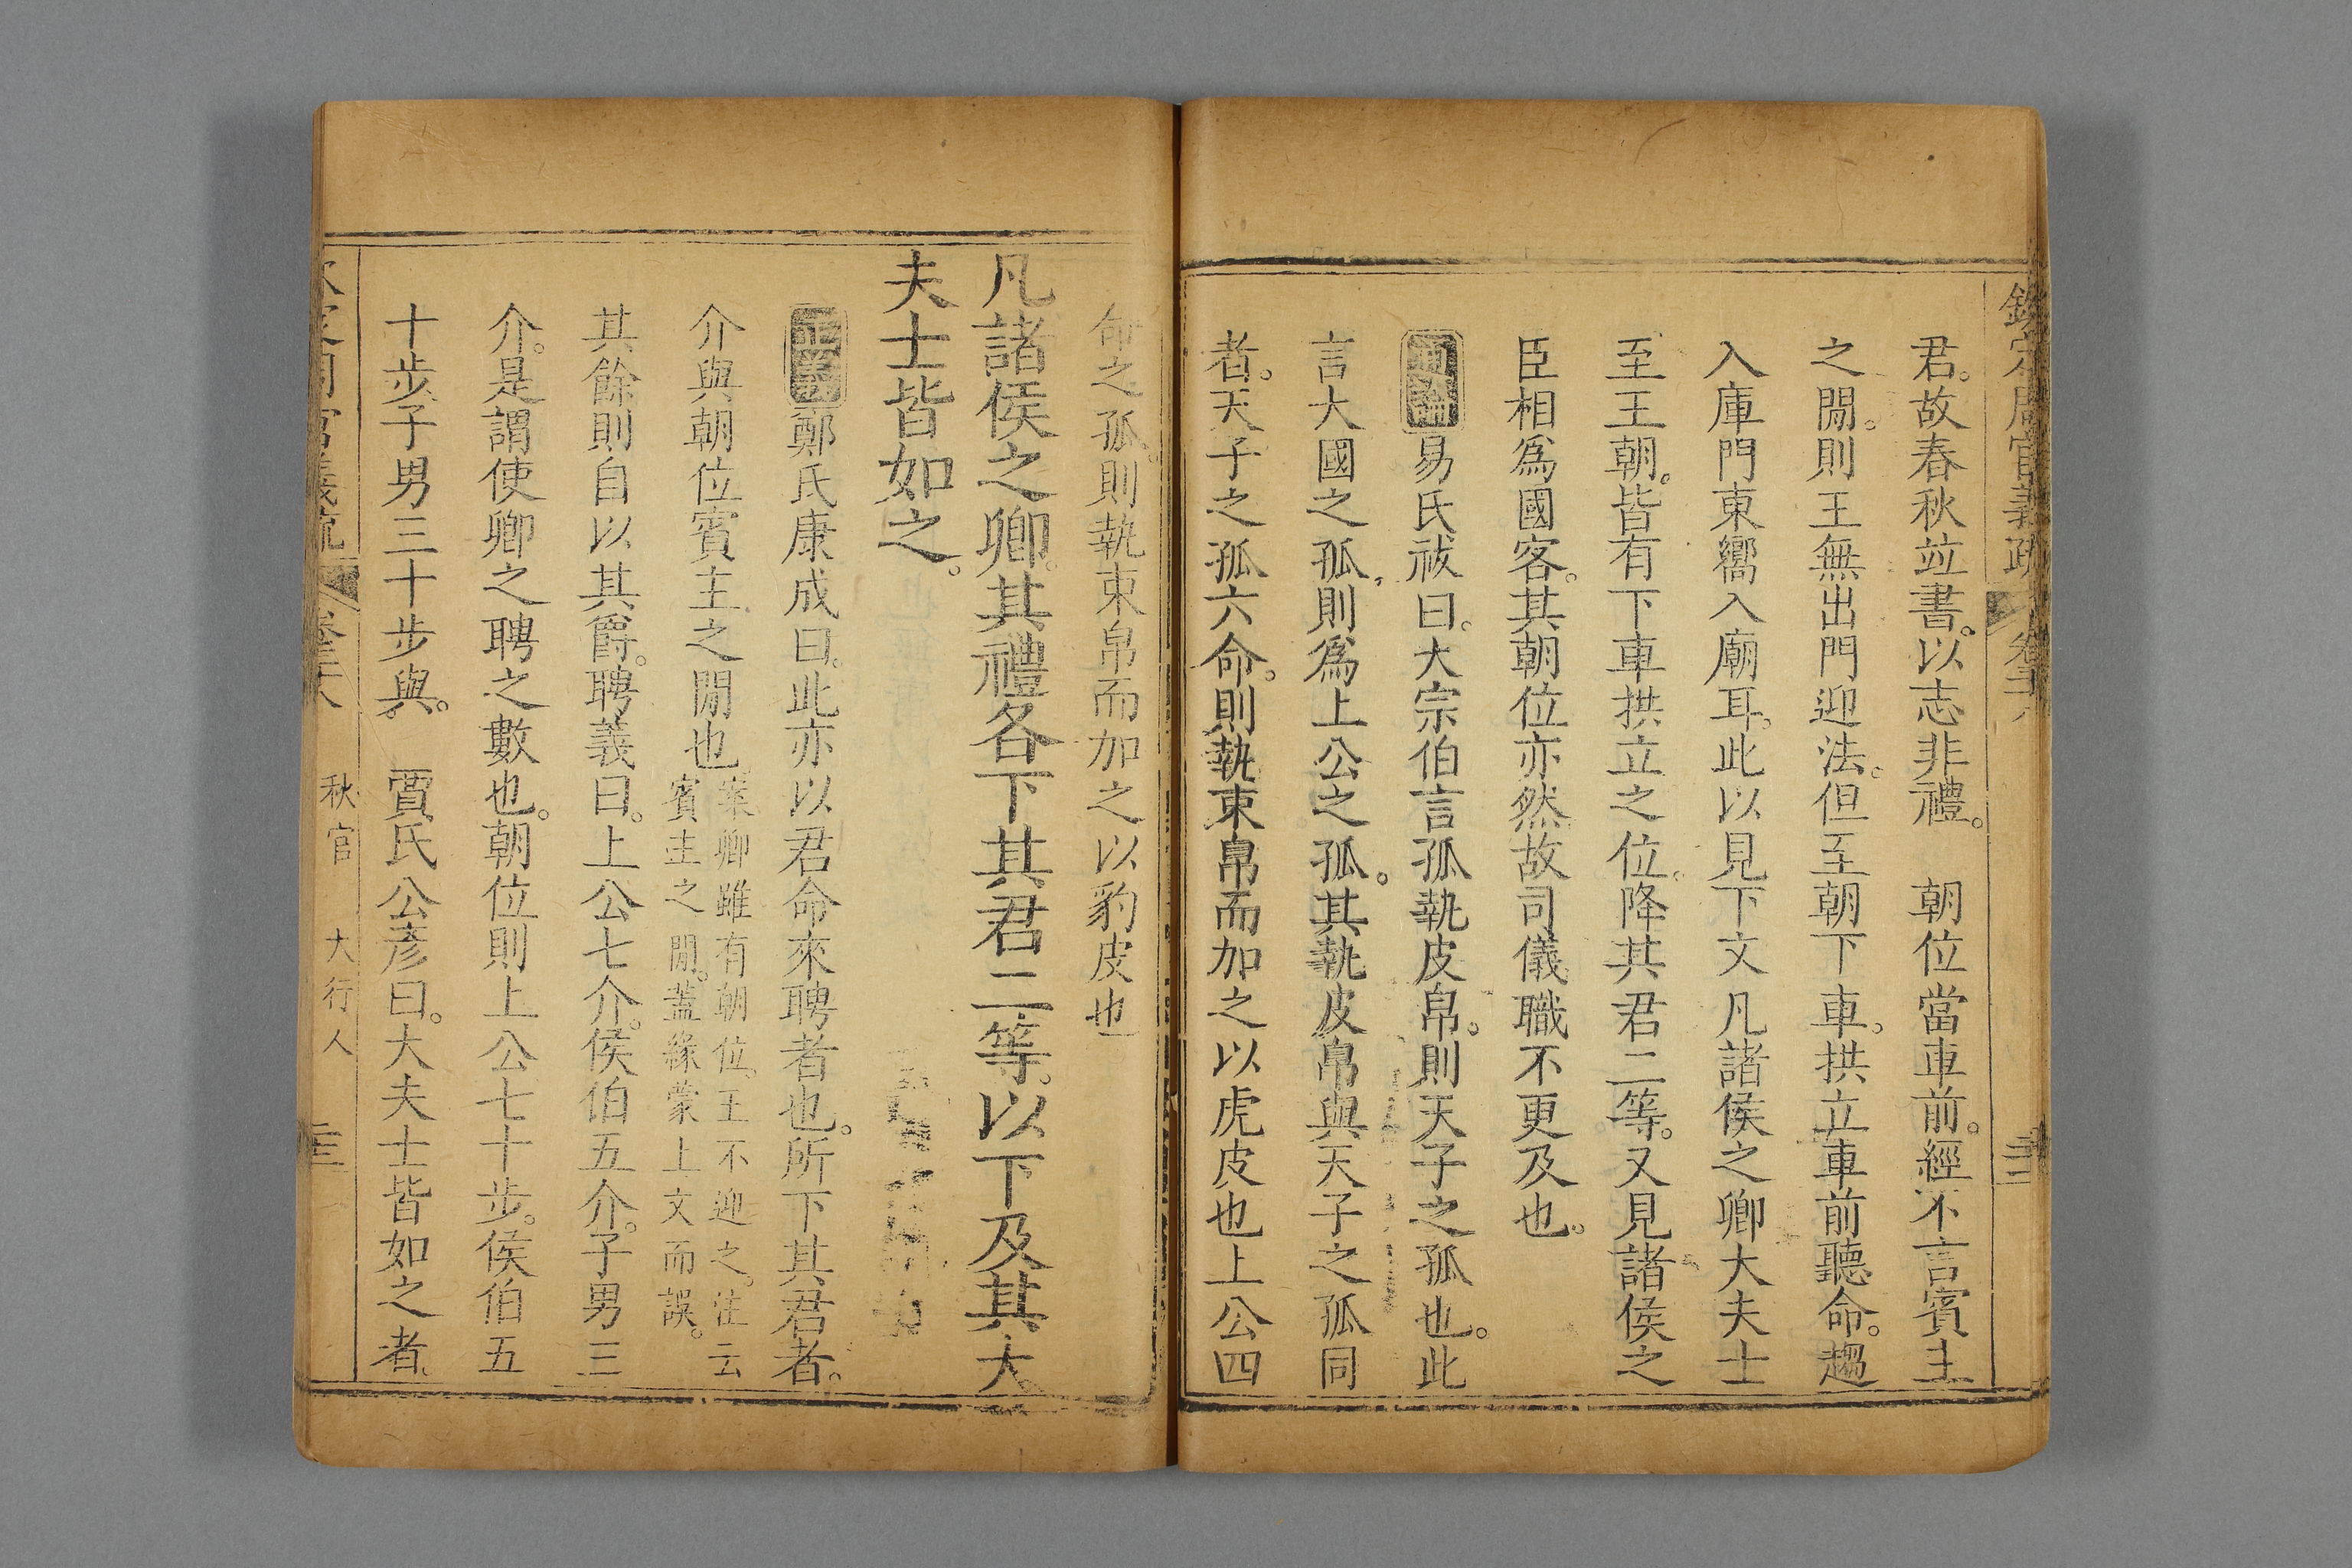 欽定周官義疏 卷三十八
君。故春秋竝書。以志非禮。 朝位當車前。經不言賓主
之閒。則王無出門迎法。但至朝下車。拱立車前聽命。趨
入庫門東嚮入廟耳。此以見下文凡諸侯之卿大夫士
至王朝。皆有下車拱立之位。降其君二等。又見諸侯之
臣相爲國客。其朝位亦然故司儀職不更及也。
通論易氏祓曰。大宗伯言孤執皮帛。則天子之孤也。此
言大國之孤。則爲上公之孤。其執皮帛與天子之孤同
者。天子之孤六命。則執束帛而加之以虎皮也上公四
命之孤。則執束帛而加之以豹皮也
凡諸侯之卿。其禮各下其君二等。以下及其大
夫士皆如之。
正義鄭氏康成曰。此亦以君命來聘者也。所下其君者。
介與朝位賓主之閒也。案卿雖有朝位。王不迎之。注云
賓主之閒。蓋緣蒙上文而誤。
其餘則自以其爵。聘義曰。上公七介。侯伯五介。子男三
介。是謂使卿之聘之數也。朝位則上公七十步。侯伯五
十步。子男三十步與。 賈氏公彥曰。大夫士皆如之者。
周官義疏 卷三十八 秋官 大行人